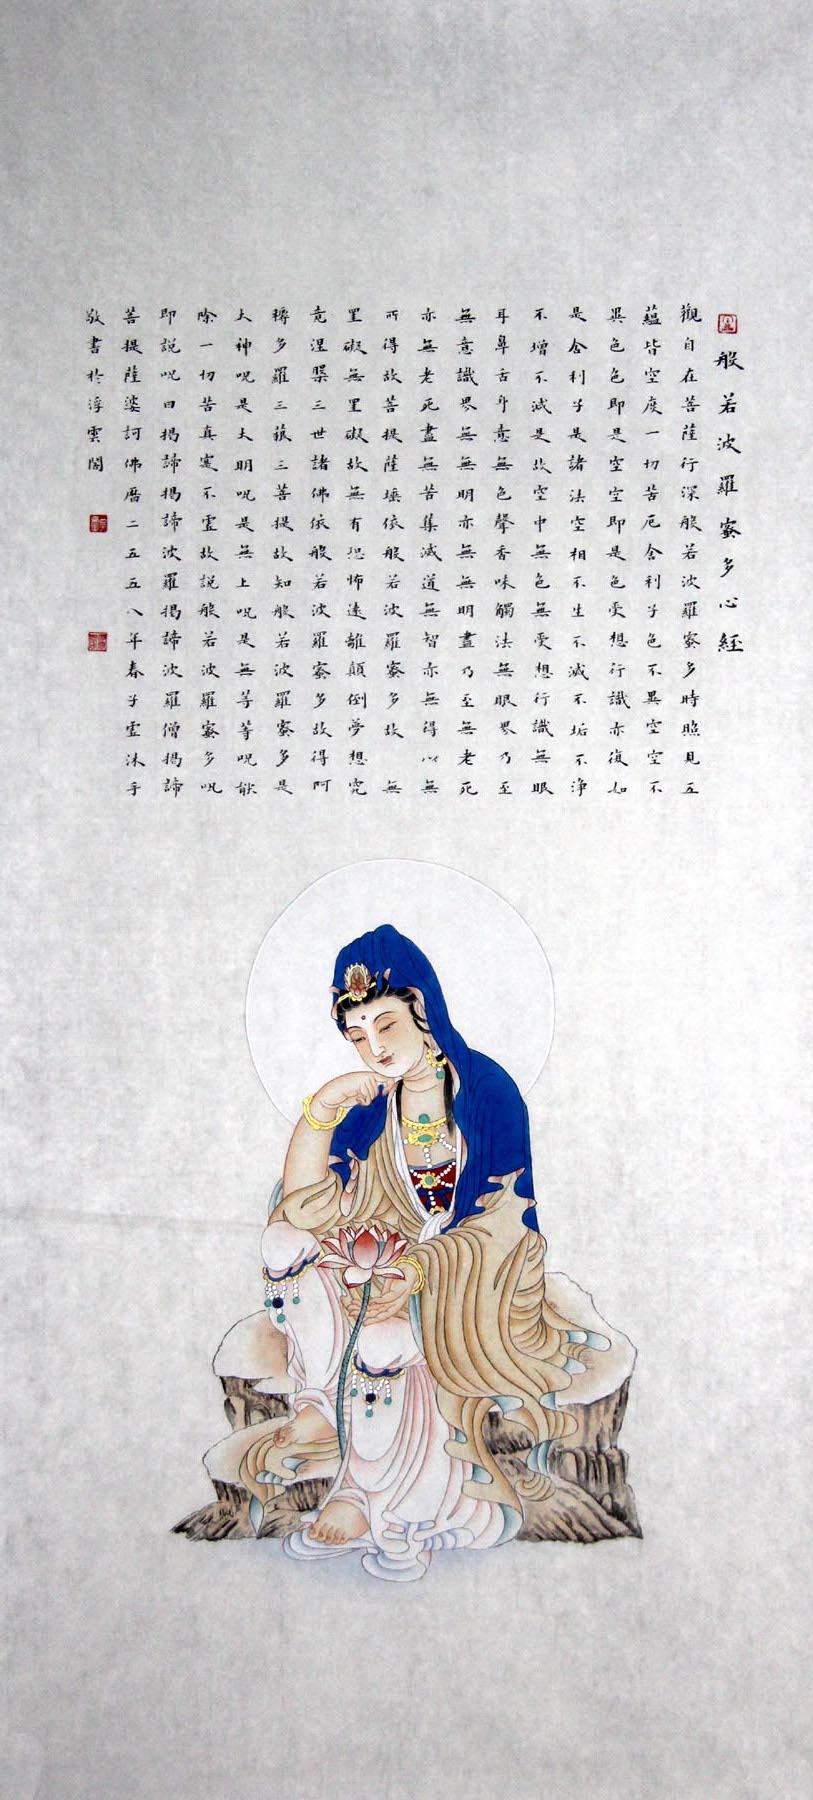 般若波羅蜜多心經
觀自在菩薩行深般若波羅蜜多時照見五
蘊皆空度一切苦厄舍利子色不異空空不
異色色即是空空即是色受想行識亦復如
是舍利子是諸法空相不生不滅不垢不淨
不增不減是故空中無色無受想行識無眼
耳鼻舌身意無色聲香味觸法無眼界乃至
無意識界無無明亦無無明盡乃至無老死
亦無老死盡無苦集滅道無智亦無得以無
所得故菩提薩埵依般若波羅蜜多故 無
罣礙無罣礙故無有恐怖遠離顛倒夢想究
竟涅槃三世諸佛依般若波羅蜜多故得阿
耨多羅三藐三菩提故知般若波羅蜜多是
大神呪是大明呪是無上呪是無等等呪能
除一切苦真實不虛故說般若波羅蜜多呪
即說呪曰揭諦揭諦波羅揭諦波羅僧揭諦
菩提薩婆訶佛曆二五五八年春子虛沐手
敬書於浮雲閣